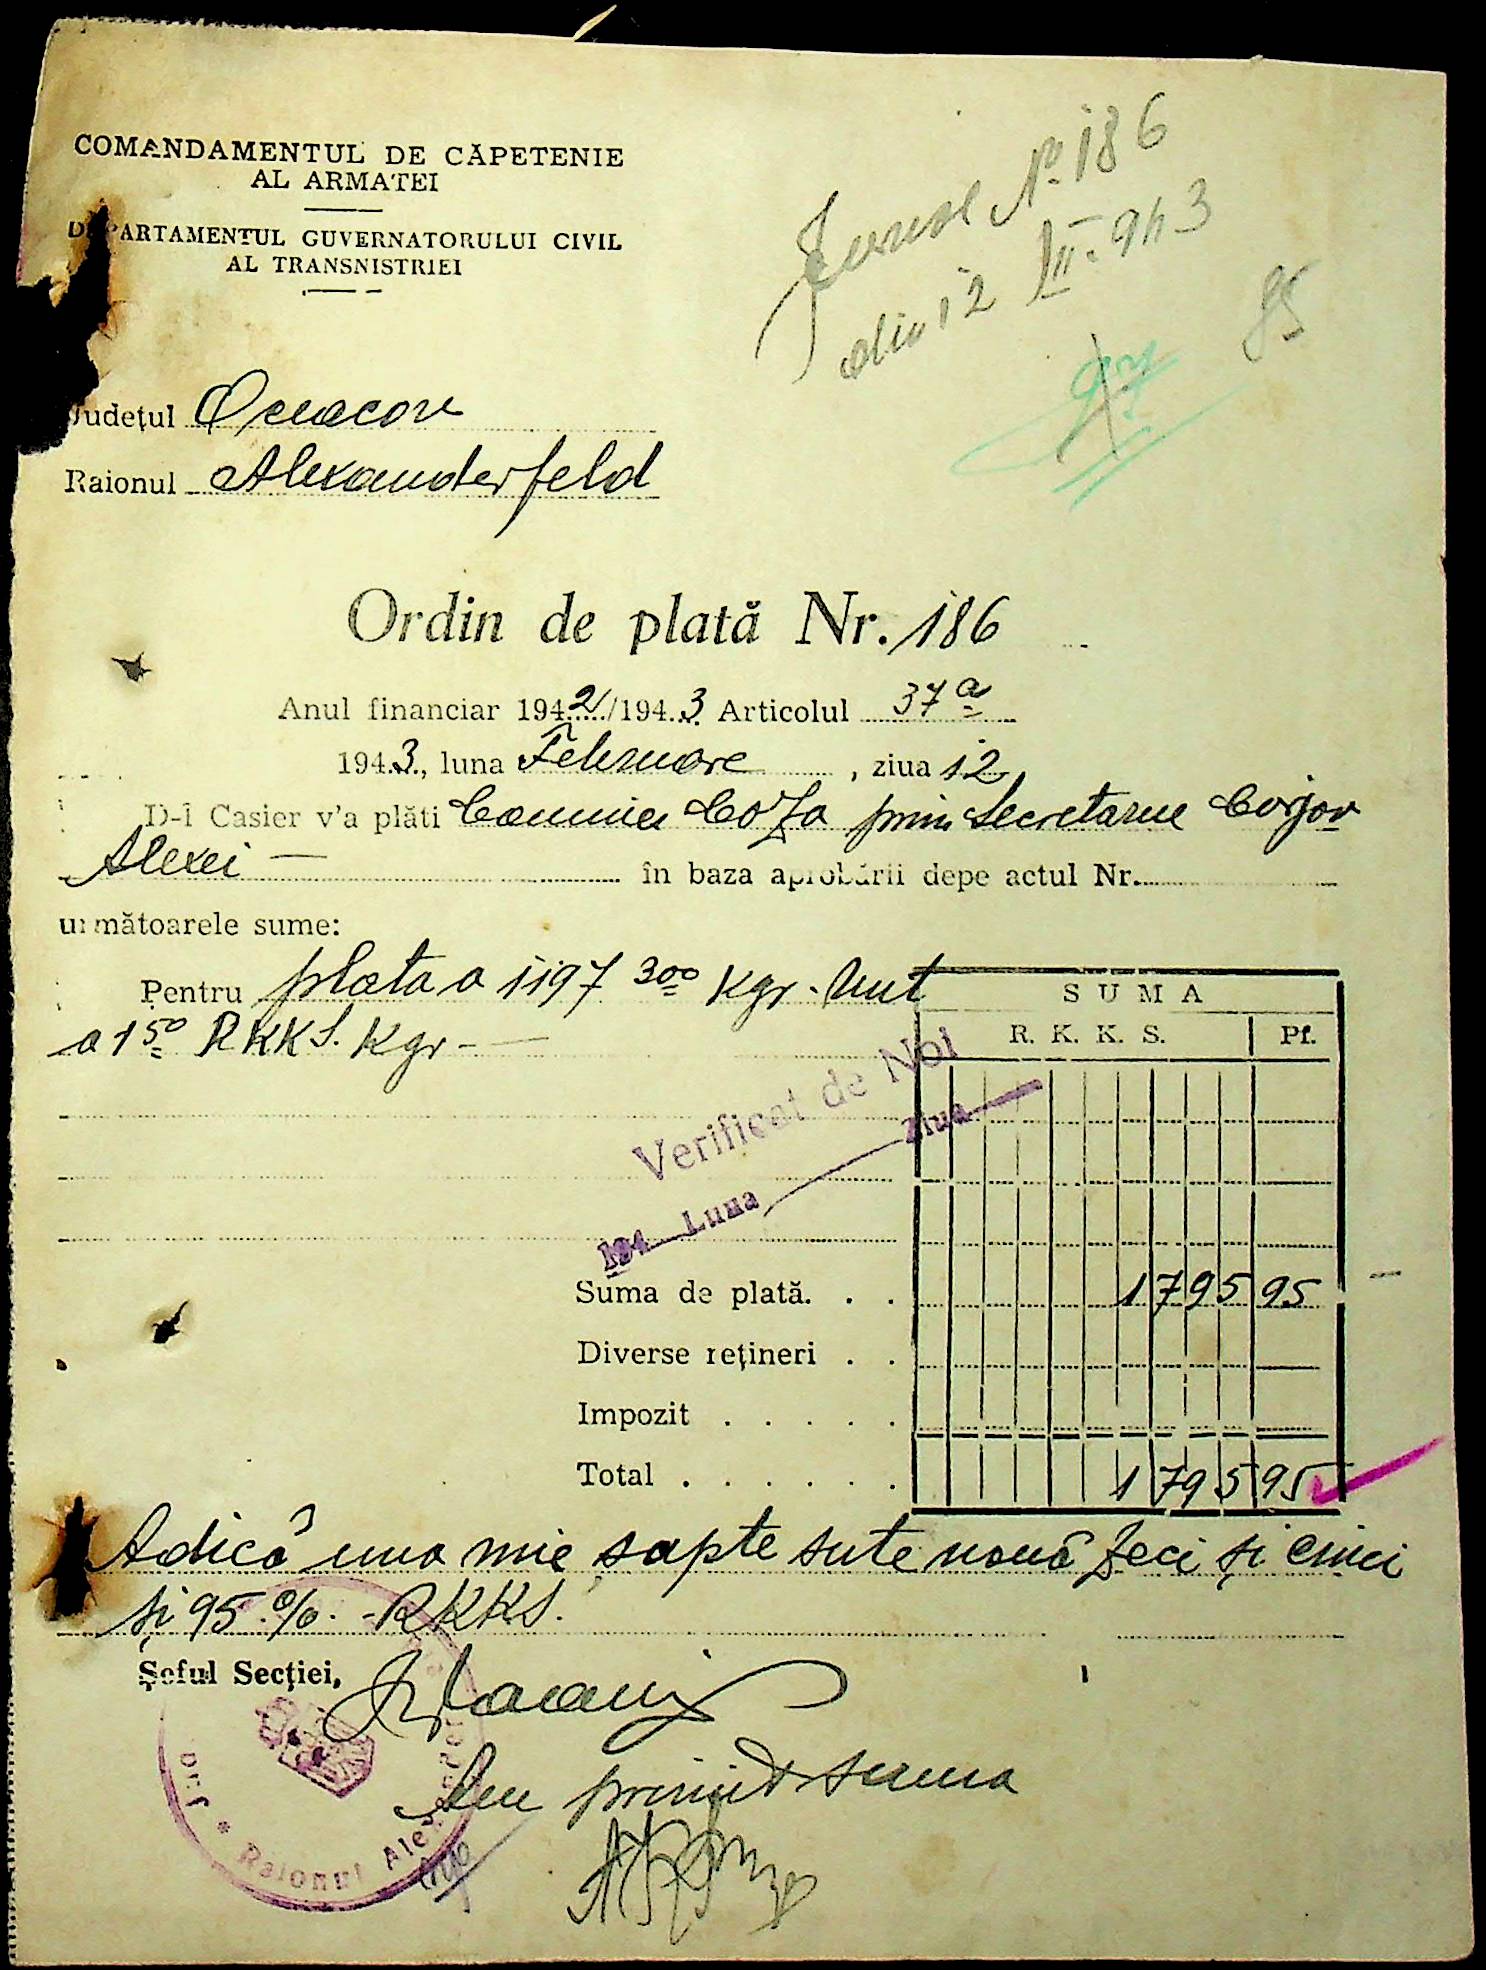 COMANDAMENTUL DE CĂPETENIE
AL ARMATEI
DEPARTAMENTUL GUVERNATORULUI CIVIL
AL TRANSNISTRIEI
No 186
din 12 II 943
85
Județul Oceacov
Raionul Alexanderfeld
Ordin de plată Nr. 186
Anul financiar 1942/1943 Articolul 37 a
1943, luna Februare, ziua 12
D-l Casier v'a plăti prin Secretarue Corjov
Alexei — în baza aprobării depe actul Nr.
următoarele sume:
Pentru plata a 1197 300 Kgr. Unt
a 1 50 RKKS. Kgr —
SUMA
R. K. K. S. Pf.
Verificat de Noi
194 Luna Ziua
Suma de plată. . . 1795 95
Diverse rețineri . .
Impozit . . . . .
Total . . . . . . 1795 95
Adică una mie șapte sute nouă zeci și cinci
și 95 %. RKKS.
Șeful Secției,
Am primit suma
Jud * Raionul Alexander